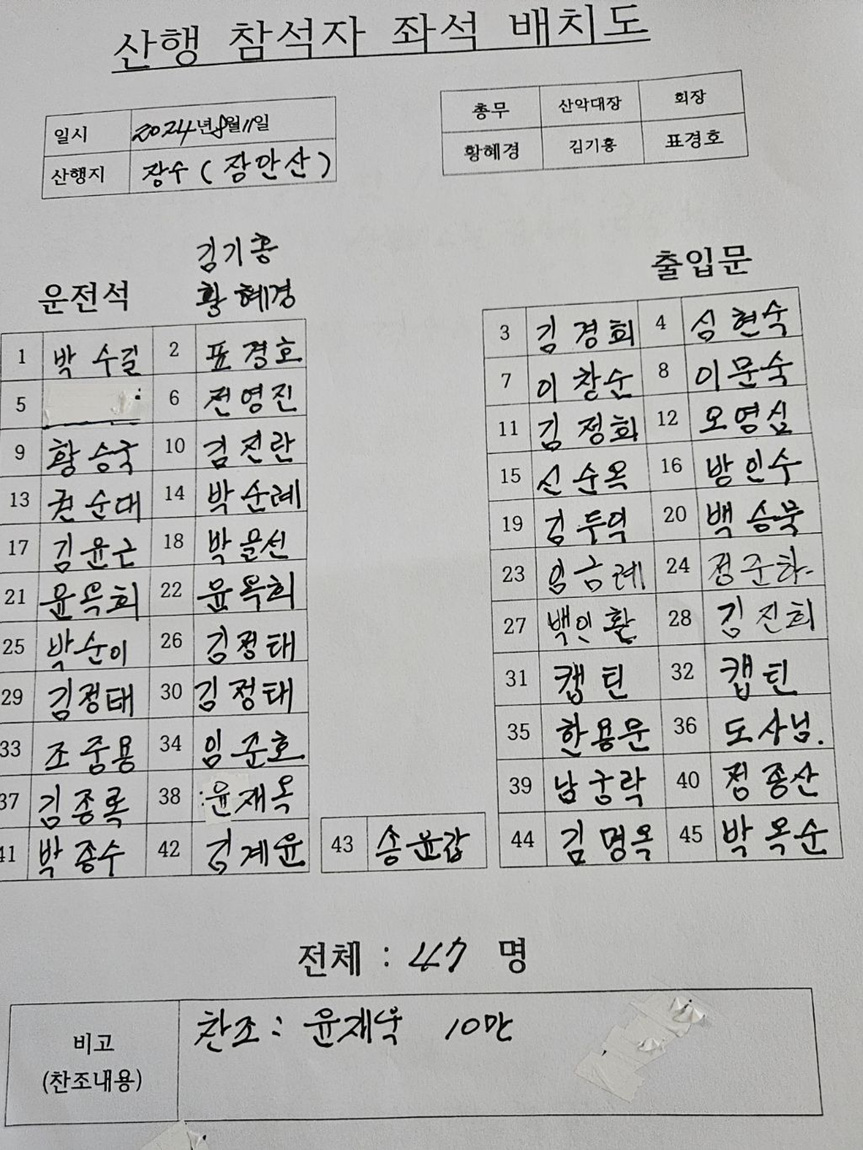 산행 참석자 좌석 배치도
일시 2024년 8월 11일
산행지 장수 (장안산)
총무 산악대장 회장
황혜경 김기홍 표경호
김기홍
황혜경
운전석
출입문
1 박수길 2 표경호 3 김경희 4 심현숙
5 6 전영진 7 이창순 8 이문숙
9 황승국 10 김진란 11 김정희 12 오영심
13 권순대 14 박순례 15 신순옥 16 방인수
17 김윤근 18 박을선 19 김두덕 20 백승북
21 윤옥희 22 윤옥희 23 임금례 24 정준하
25 박순이 26 김정태 27 백인환 28 김진희
29 김정태 30 김정태 31 캡틴 32 캡틴
33 조중용 34 임준호 35 한용운 36 도사님.
37 김종록 38 윤재옥 39 남궁락 40 정종산
41 박종수 42 김계윤 43 송윤갑 44 김명옥 45 박옥순
전체 : 47 명
비고
(찬조내용)
찬조 : 윤재옥 10만